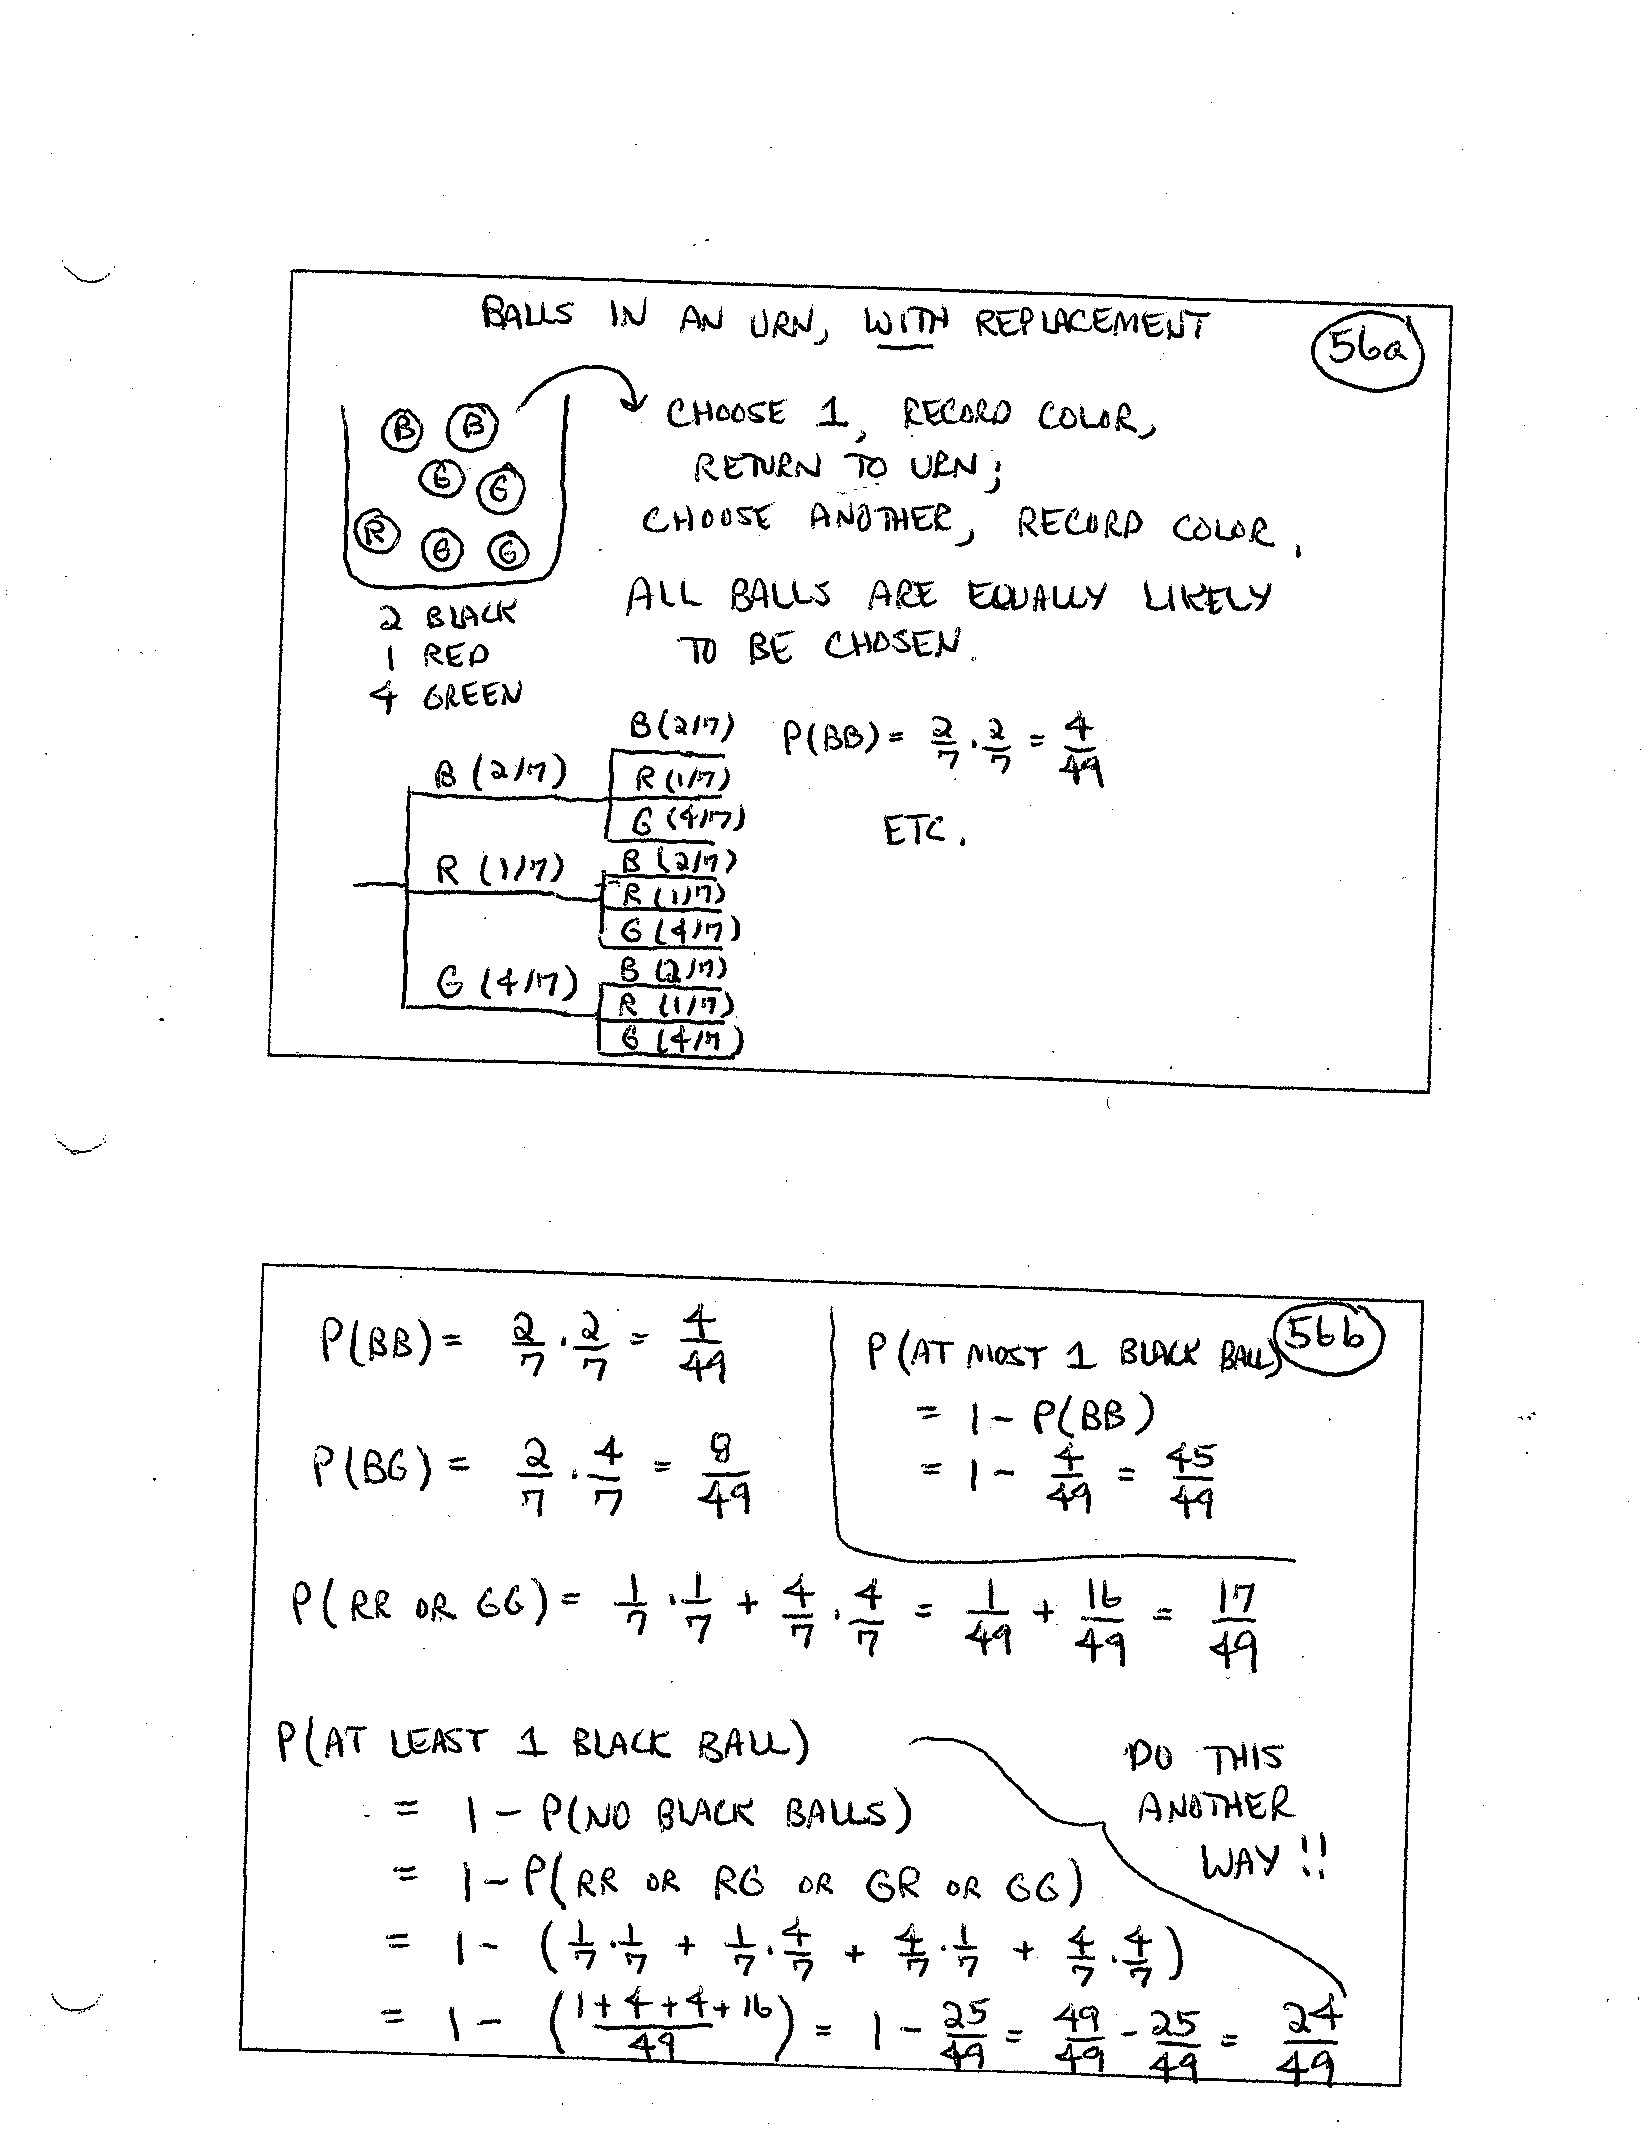 BALLS IN AN URN, WITH REPLACEMENT
56a
B B
G G
R G G
CHOOSE 1, RECORD COLOR,
RETURN TO URN;
CHOOSE ANOTHER, RECORD COLOR.
ALL BALLS ARE EQUALLY LIKELY
TO BE CHOSEN.
2 BLACK
1 RED
4 GREEN
B (2/7)
B (2/7)
R (1/7)
G (4/7)
R (1/7)
B (2/7)
R (1/7)
G (4/7)
G (4/7)
B (2/7)
R (1/7)
G (4/7)
P(BB) = 2/7 · 2/7 = 4/49
ETC.
56b
P(BB) = 2/7 · 2/7 = 4/49
P(BG) = 2/7 · 4/7 = 8/49
P(AT MOST 1 BLACK BALL)
= 1 - P(BB)
= 1 - 4/49 = 45/49
P(RR OR GG) = 1/7 · 1/7 + 4/7 · 4/7 = 1/49 + 16/49 = 17/49
P(AT LEAST 1 BLACK BALL)
= 1 - P(NO BLACK BALLS)
= 1 - P(RR OR RG OR GR OR GG)
= 1 - (1/7 · 1/7 + 1/7 · 4/7 + 4/7 · 1/7 + 4/7 · 4/7)
= 1 - ((1+4+4+16)/49) = 1 - 25/49 = 49/49 - 25/49 = 24/49
DO THIS
ANOTHER
WAY!!